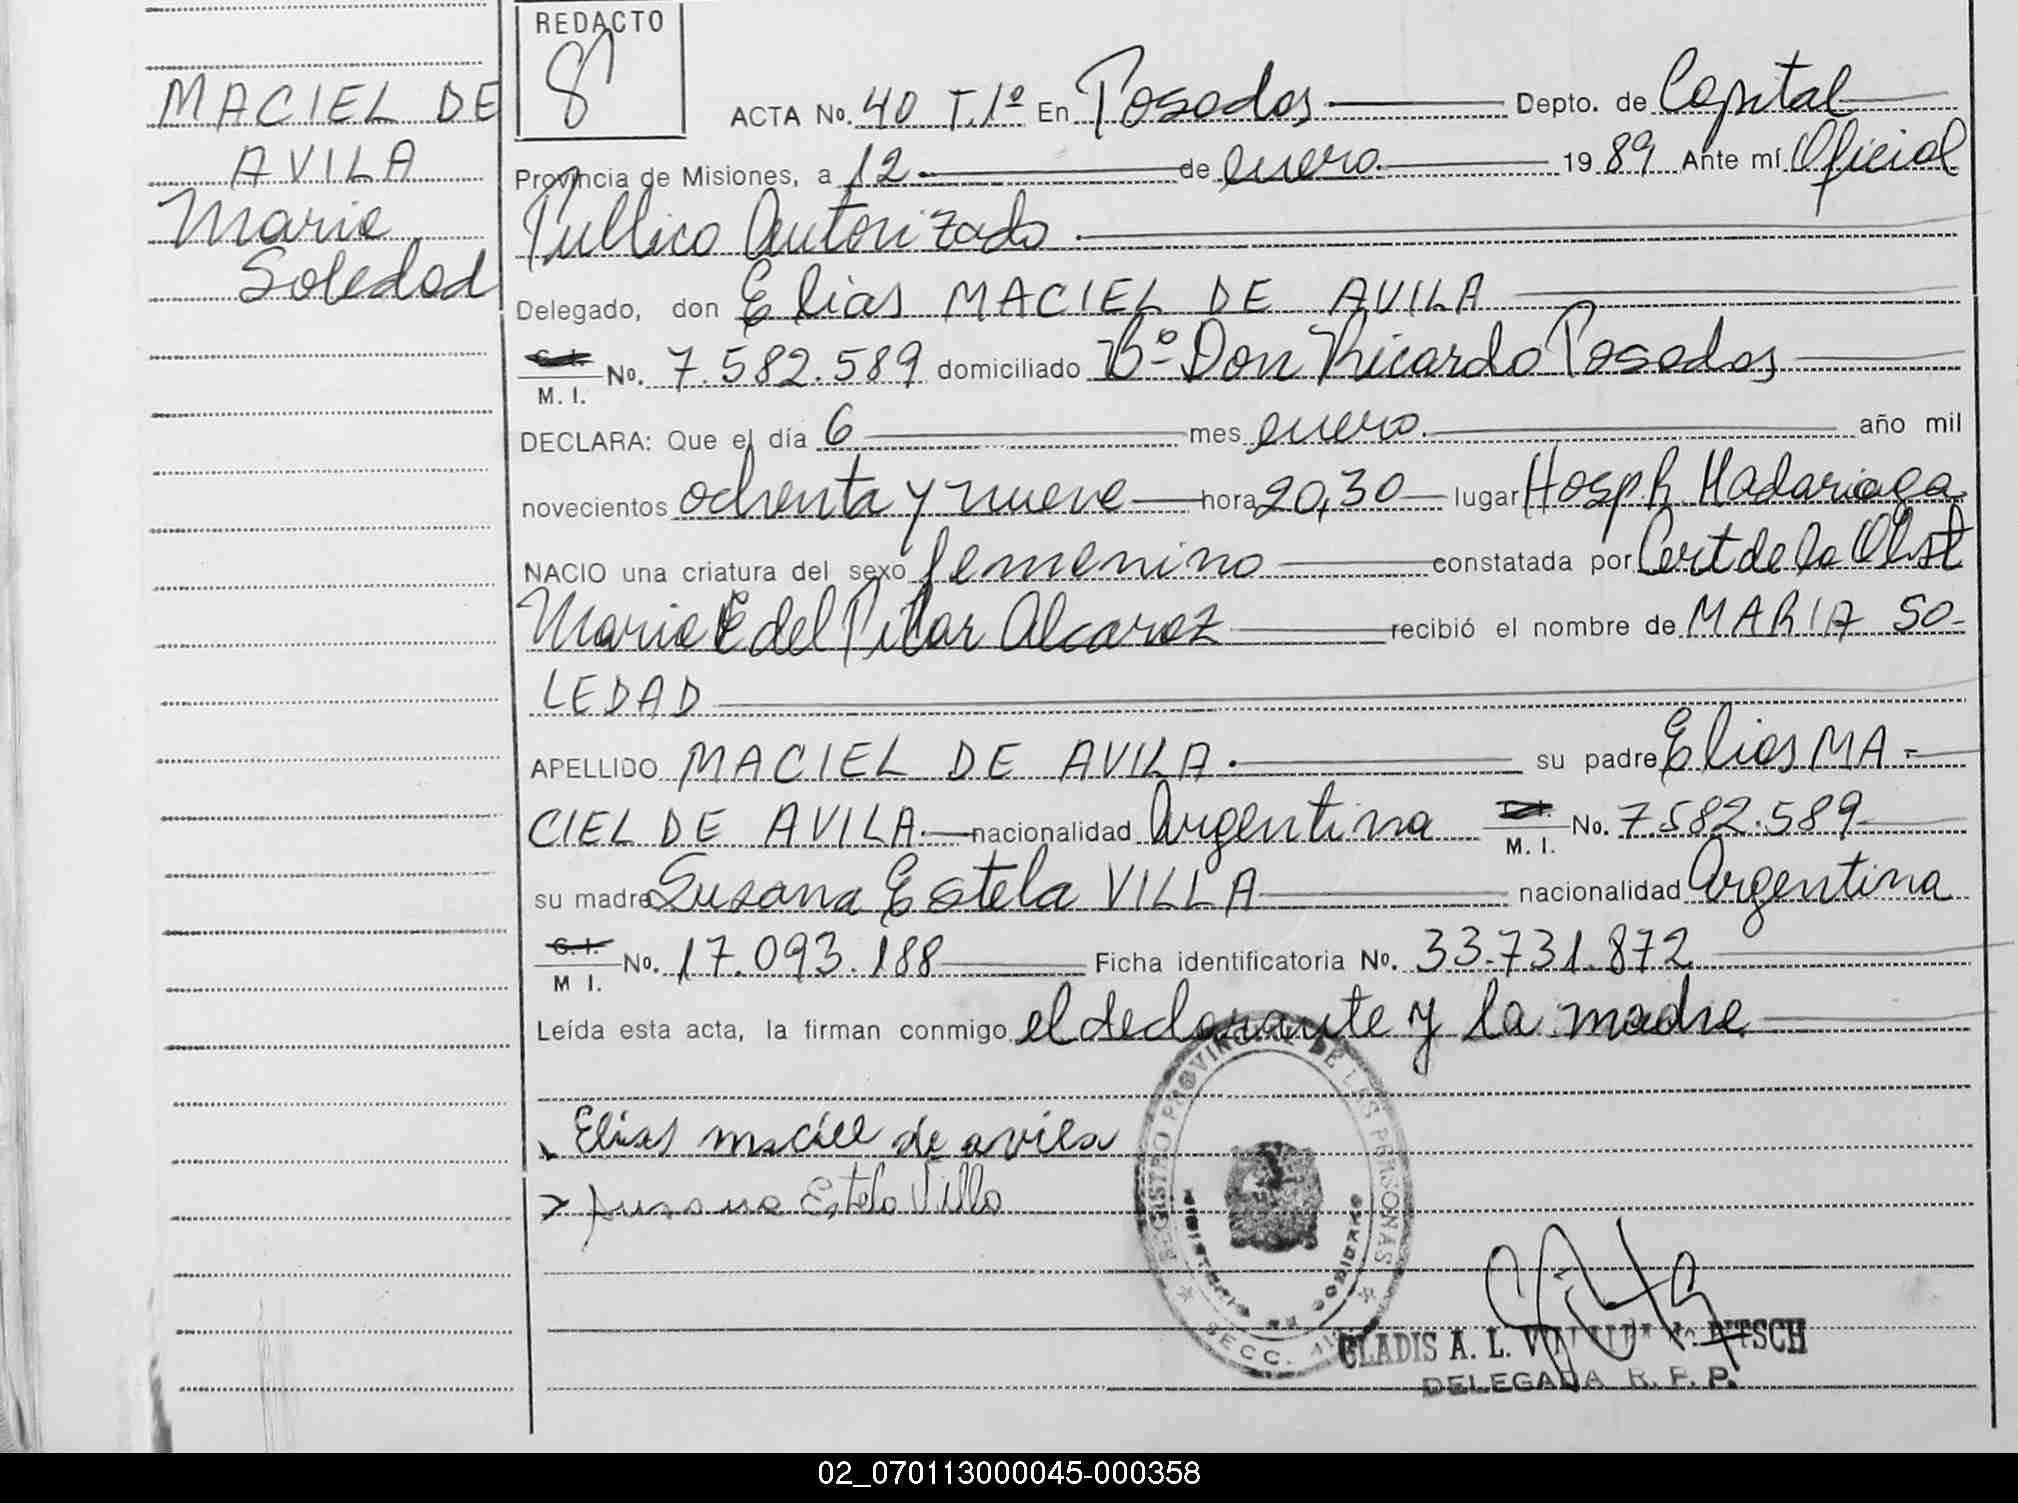 MACIEL DE
AVILA
Maria
Soledad
REDACTO
ACTA No. 40 T.1º En Posadas Depto. de Capital
Provincia de Misiones, a 12 de enero 1989 Ante mí Oficial
Publico Autorizado
Delegado, don Elias MACIEL DE AVILA
C. I. No. 7.582.589 domiciliado Bº Don Ricardo Posadas
M. I.
DECLARA: Que el día 6 mes enero año mil
novecientos ochenta y nueve hora 20,30 lugar Hosp. R. Madariaga
NACIO una criatura del sexo femenino constatada por Cert de la Obst
Maria E del Pilar Alcaraz recibió el nombre de MARIA SO-
LEDAD
APELLIDO MACIEL DE AVILA. su padre Elias MA-
CIEL DE AVILA. nacionalidad Argentina No. 7582.589
M. I.
su madre Susana Estela VILLA nacionalidad Argentina
C. I. No. 17.093.188 Ficha identificatoria No. 33.731.872
M I.
Leída esta acta, la firman conmigo el declarante y la madre
Elias maciel de avila
Susana Estela Villa
REGISTRO PROVINCIAL DE LAS PERSONAS
MINISTERIO DE GOBIERNO
SECC.
GLADIS A. L.
DELEGADA R. P. P.
02_070113000045-000358